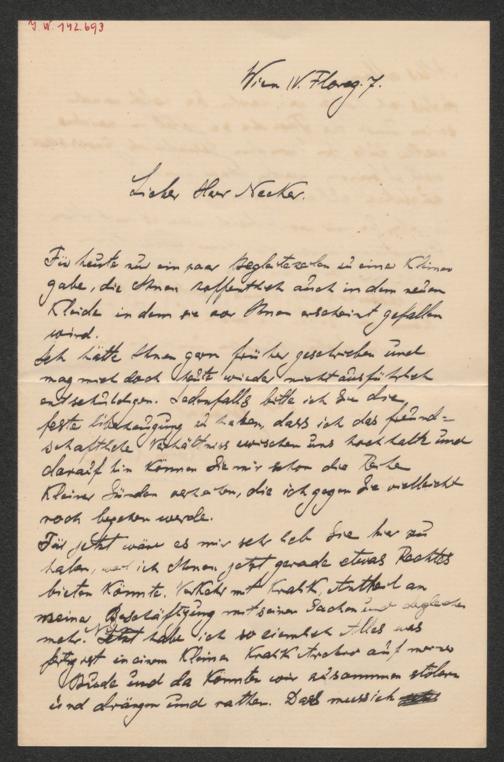 J. N. 142.693
Wien IV. Floreg. 7.
Lieber Herr Necker.
Für heute nur ein paar Begleitzeilen zu einer kleinen
gabe, die Ihnen hoffentlich auch in dem neuen
Kleide in dem sie vor Ihnen erscheint gefallen
wird.
Ich hätte Ihnen gern früher geschrieben und
mag mich doch heute wieder nicht ausführlich
entschuldigen. Jedenfalls bitte ich Sie die
feste Überzeugung zu haben, dass ich das freund=
schaftliche Verhältniss zwischen uns hochhalte und
darauf hin können Sie mir schon die Reihe
kleiner Sünden verzeihen, die ich gegen Sie vielleicht
noch begehen werde.
Für jetzt wäre es mir sehr lieb Sie hier zu
haben, weil ich Ihnen jetzt gerade etwas Rechtes
bieten könnte. Verkehr mit Kralik, Antheil an
meiner Beschäftigung mit seinen Sachen und dergleichen
mehr. Jetzt habe ich so ziemlich Alles was
fertig ist in einem kleinen Kralik Archiv auf meiner
Bude und da könnten wir zusammen stöbern
und drängen und rathen. Dass muss ich